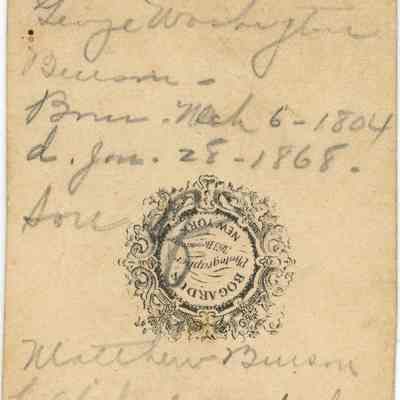 George Washington
Benson -
Born. Mch 6 - 1804
d. Jan. 28 - 1868.
Son
of
BOGARDUS
Photographer
363 Broadway
NEW YORK
Matthew Benson